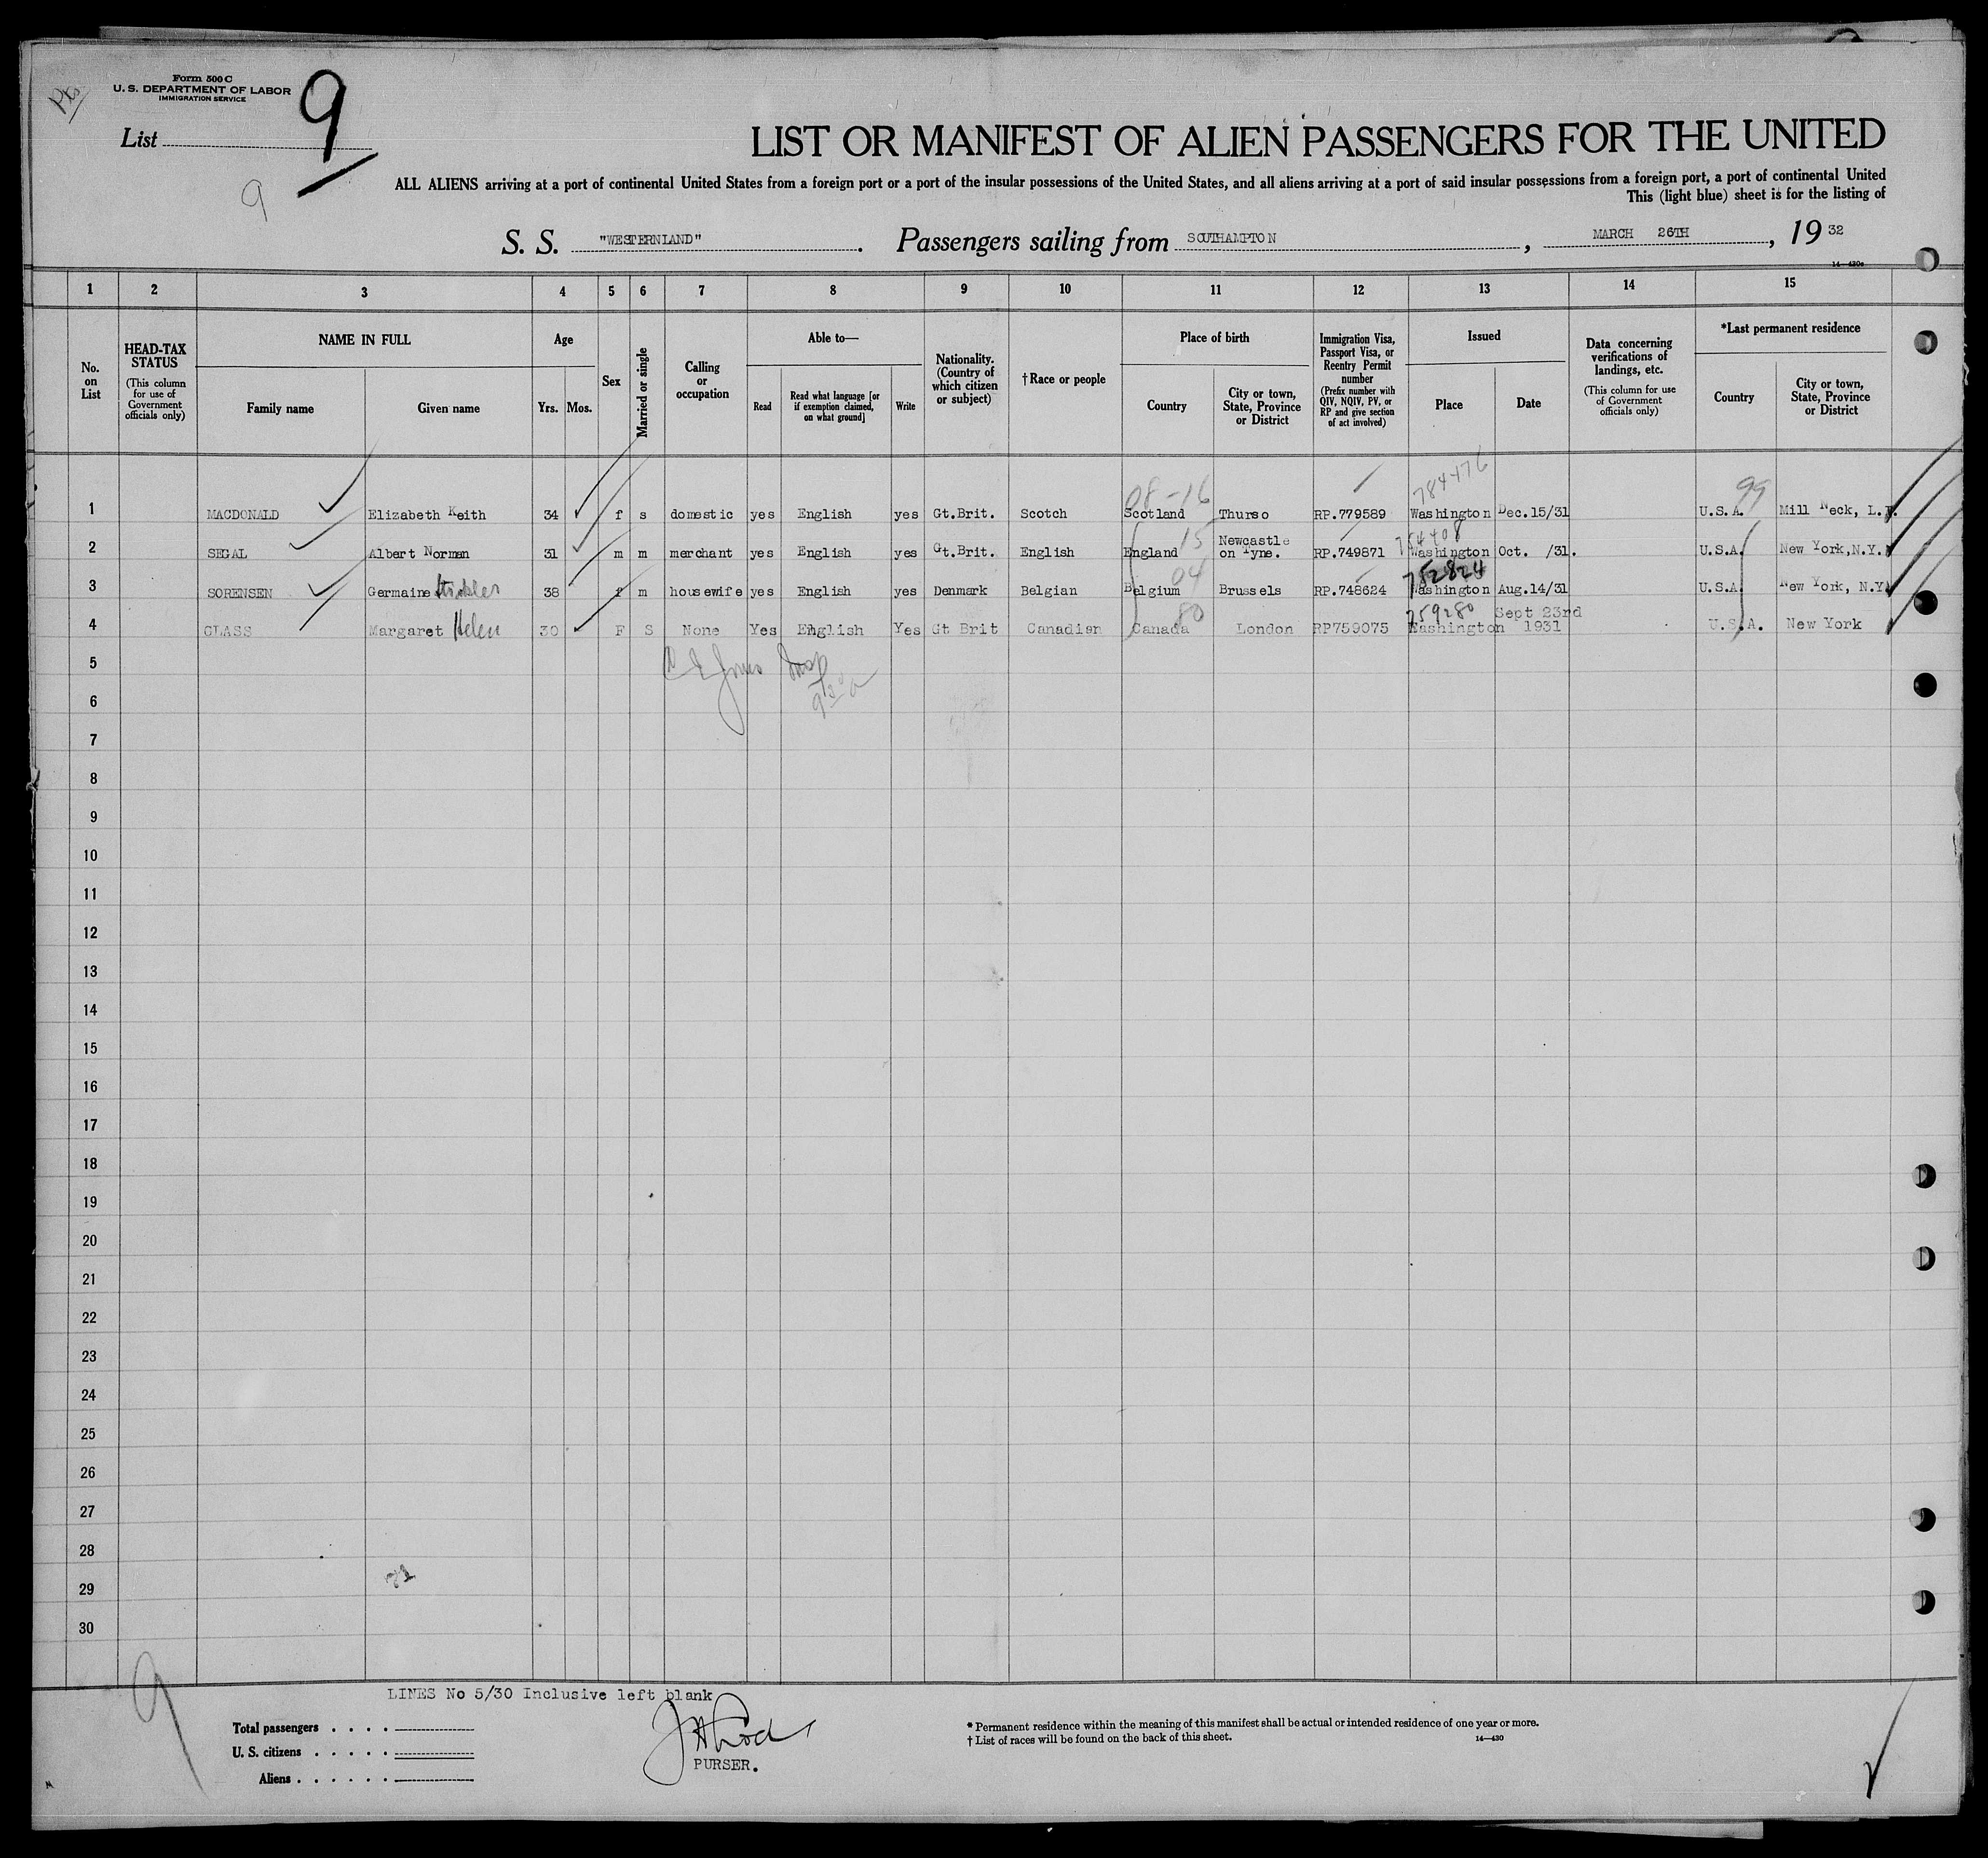 Form 500 C
U. S. DEPARTMENT OF LABOR
IMMIGRATION SERVICE
List 9
9
LIST OR MANIFEST OF ALIEN PASSENGERS FOR THE UNITED
ALL ALIENS arriving at a port of continental United States from a foreign port or a port of the insular possessions of the United States, and all aliens arriving at a port of said insular possessions from a foreign port, a port of continental United
This (light blue) sheet is for the listing of
S. S. "WESTERNLAND". Passengers sailing from SOUTHAMPTON, MARCH 26TH, 1932
14—430a
1 2 3 4 5 6 7 8 9 10 11 12 13 14 15
No. on List
HEAD-TAX STATUS (This column for use of Government officials only)
NAME IN FULL
Family name Given name
Age
Yrs. Mos.
Sex
Married or single
Calling or occupation
Able to—
Read
Read what language [or if exemption claimed, on what ground]
Write
Nationality. (Country of which citizen or subject)
†Race or people
Place of birth
Country
City or town, State, Province or District
Immigration Visa, Passport Visa, or Reentry Permit number (Prefix number with QIV, NQIV, PV, or RP and give section of act involved)
Issued
Place Date
Data concerning verifications of landings, etc. (This column for use of Government officials only)
*Last permanent residence
Country
City or town, State, Province or District
08-16 784476 99
1 MACDONALD Elizabeth Keith 34 f s domestic yes English yes Gt.Brit. Scotch Scotland Thurso RP.779589 Washington Dec.15/31 U.S.A. Mill Neck, L.I.
15 754408
2 SEGAL Albert Norman 31 m m merchant yes English yes Gt.Brit. English England Newcastle on Tyne. RP.749871 Washington Oct. /31. U.S.A. New York,N.Y.
04 752824
3 SORENSEN Germaine 38 f m housewife yes English yes Denmark Belgian Belgium Brussels RP.748624 Washington Aug.14/31 U.S.A. New York, N.Y.
80 759280
4 GLASS Margaret Helen 30 F S None Yes English Yes Gt Brit Canadian Canada London RP759075 Washington Sept 23rd 1931 U.S.A. New York
5
6
7
8
9
10
11
12
13
14
15
16
17
18
19
20
21
22
23
24
25
26
27
28
29
30
9
LINES No 5/30 Inclusive left blank
Total passengers . . . .
U. S. citizens . . . . .
Aliens . . . . . .
PURSER.
* Permanent residence within the meaning of this manifest shall be actual or intended residence of one year or more.
† List of races will be found on the back of this sheet.
14—430